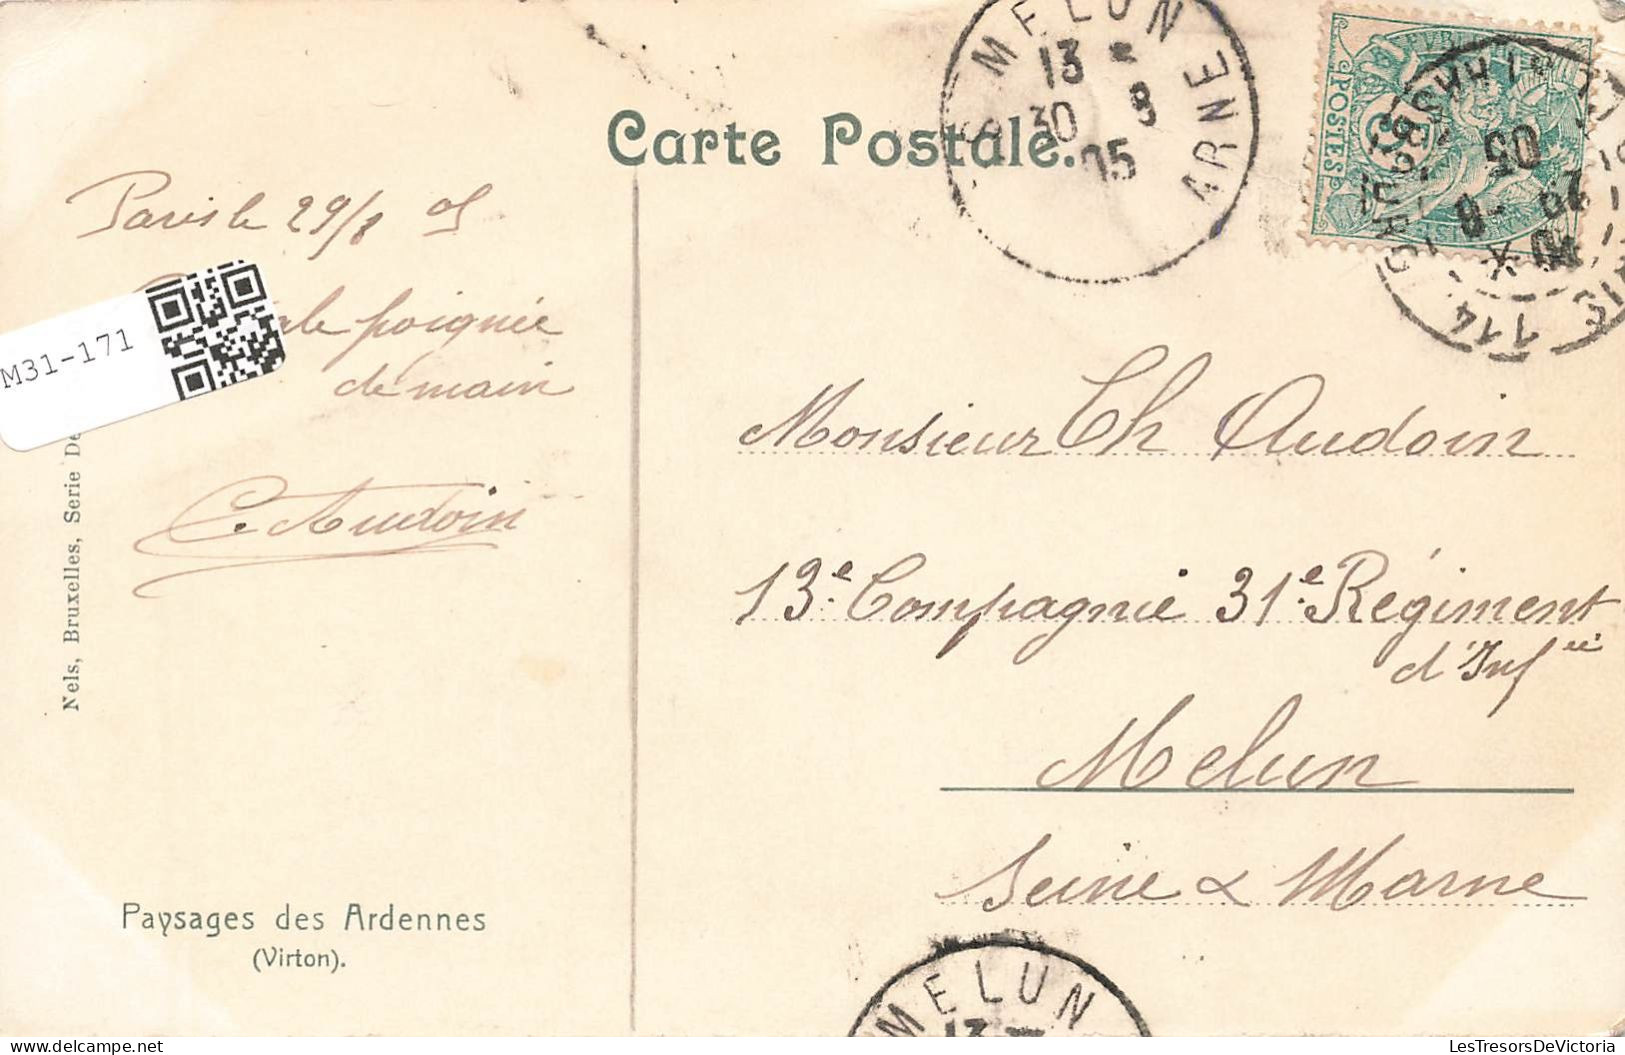 Carte Postale.
MELUN
13
30 8
05
ARNE
POSTES
05
114
Paris le 29/8 05
poignée
de main
C. Audoin
M31-171
Nels, Bruxelles, Serie
Paysages des Ardennes
(Virton).
Monsieur Ch Audoin
13e Compagnie 31e Régiment
d'Infie
Melun
Seine & Marne
MELUN
13
LesTresorsDeVictoria